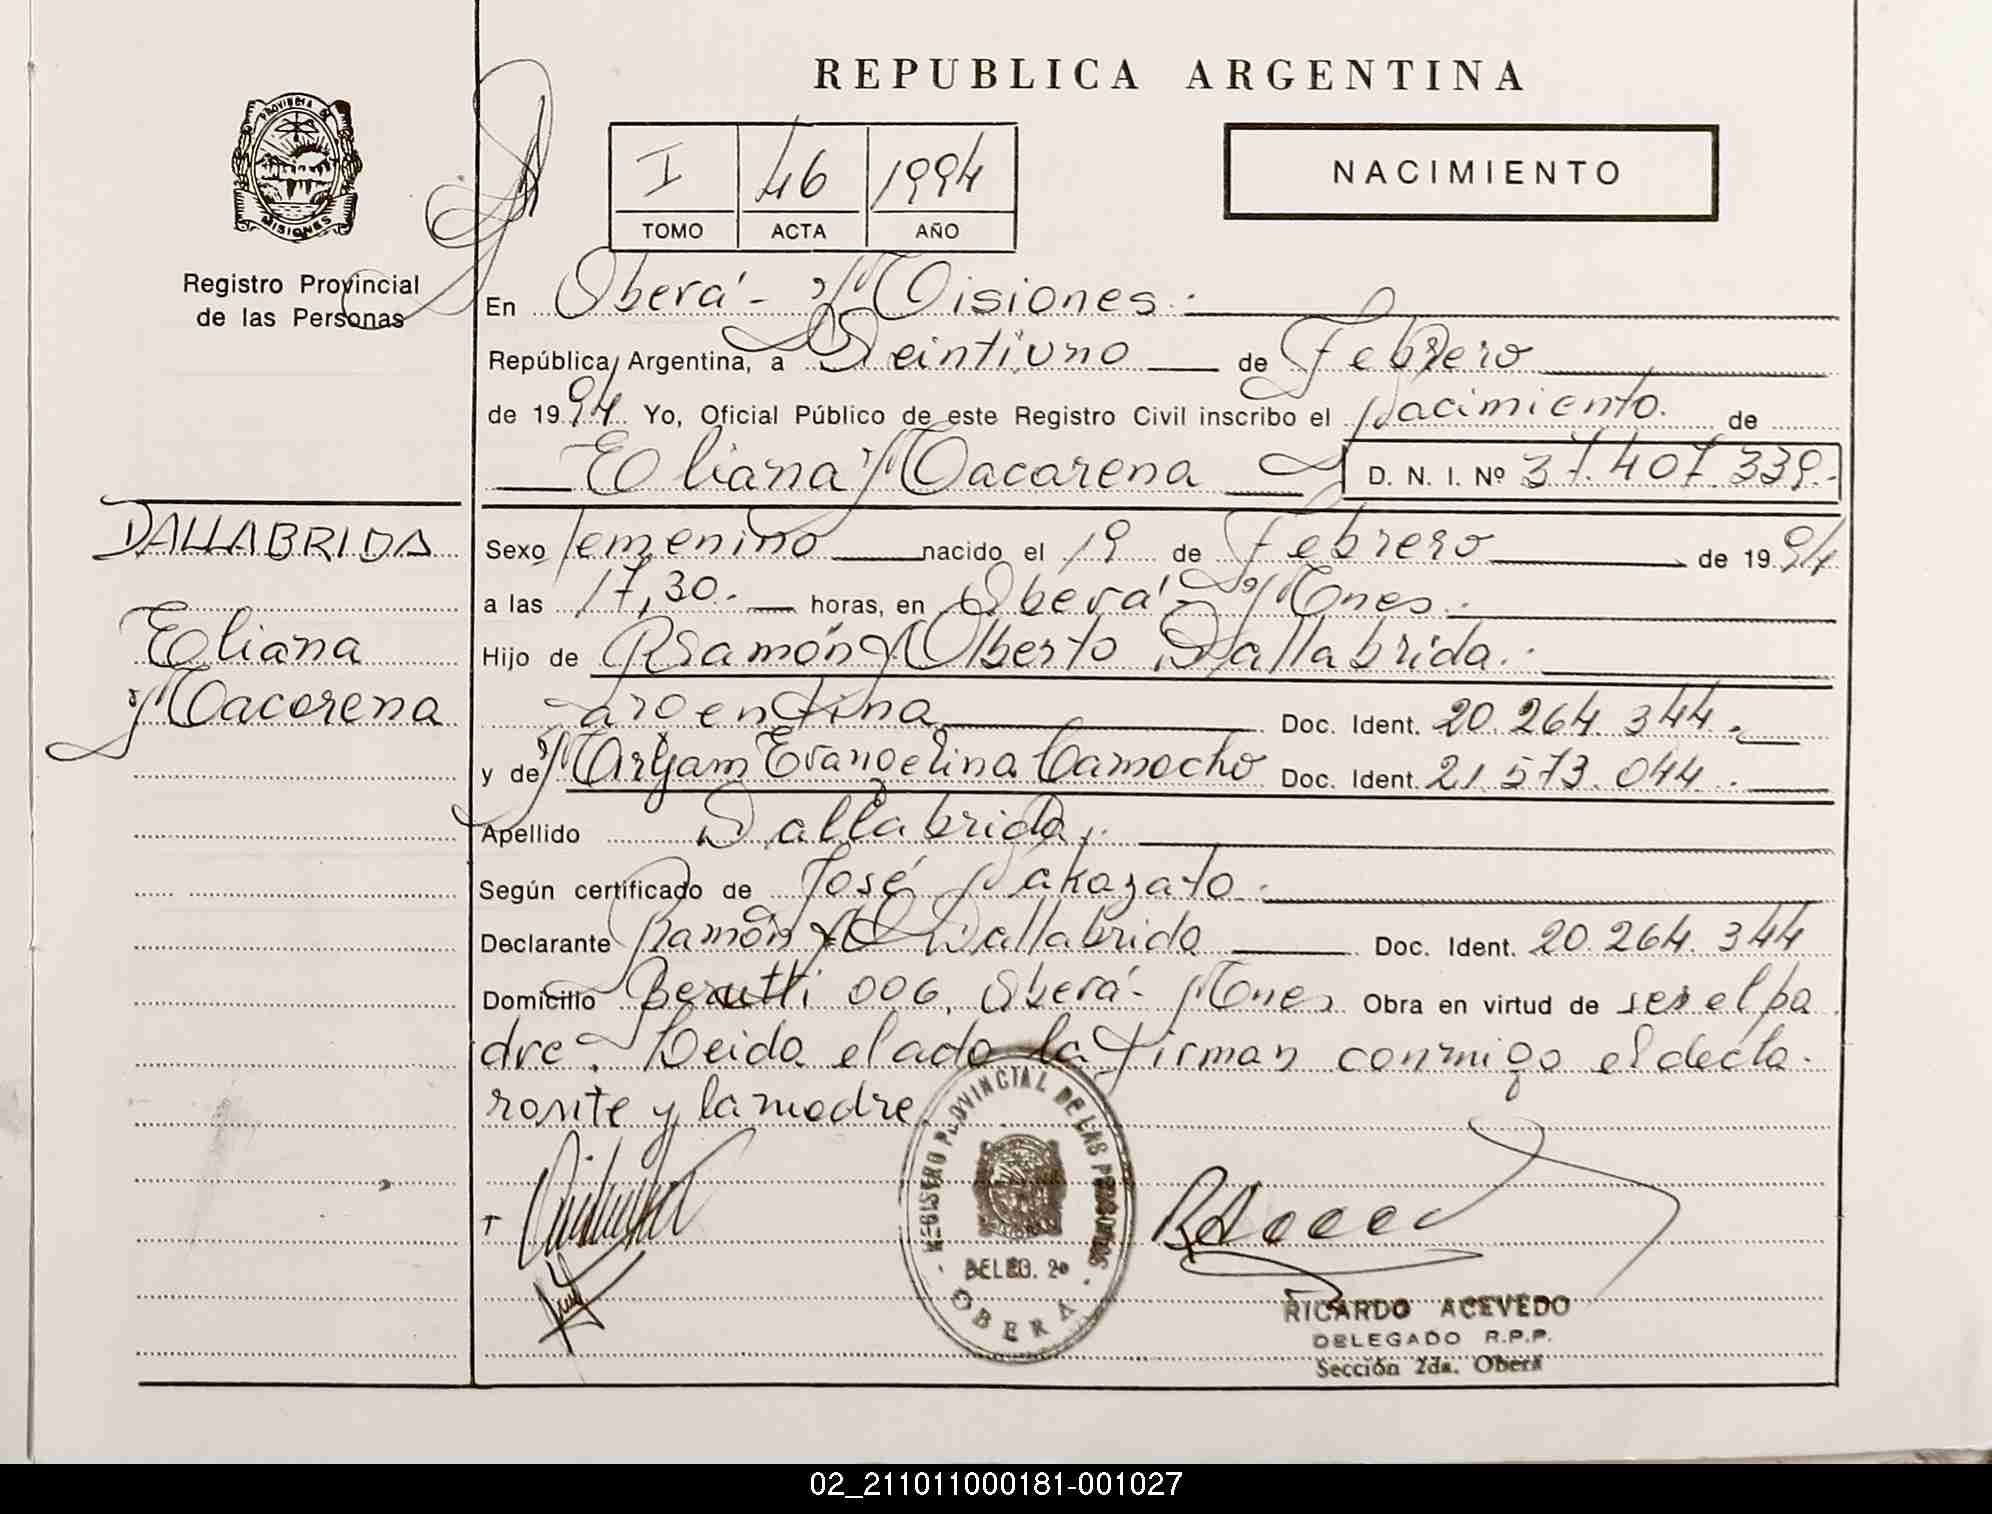 REPUBLICA ARGENTINA
PROVINCIA DE
MISIONES
Registro Provincial
de las Personas
I 46 1994
TOMO ACTA AÑO
NACIMIENTO
En Oberá - Misiones.
República Argentina, a Veintiuno de Febrero
de 1994 Yo, Oficial Público de este Registro Civil inscribo el Nacimiento. de
Eliana Macarena D. N. I. Nº 37.407.339.-
DALLABRIDA
Eliana
Macarena
Sexo femenino nacido el 19 de Febrero de 1994
a las 17,30.- horas, en Oberá - Mnes.
Hijo de Ramón Alberto Dallabrida.
argentina Doc. Ident. 20.264.344.-
y de Myryam Evangelina Camacho Doc. Ident. 21.573.044.
Apellido Dallabrida.
Según certificado de José Nakazato.
Declarante Ramón A Dallabrida Doc. Ident. 20.264.344
Domicilio Berutti 006, Oberá - Mnes Obra en virtud de ser el pa
dre. Leida el acta la firman conmigo el decla-
rante y la madre
REGISTRO PROVINCIAL DE LAS PERSONAS
DELEG. 2a
OBERA
RICARDO ACEVEDO
DELEGADO R.P.P.
Sección 2da. Oberá
02_211011000181-001027